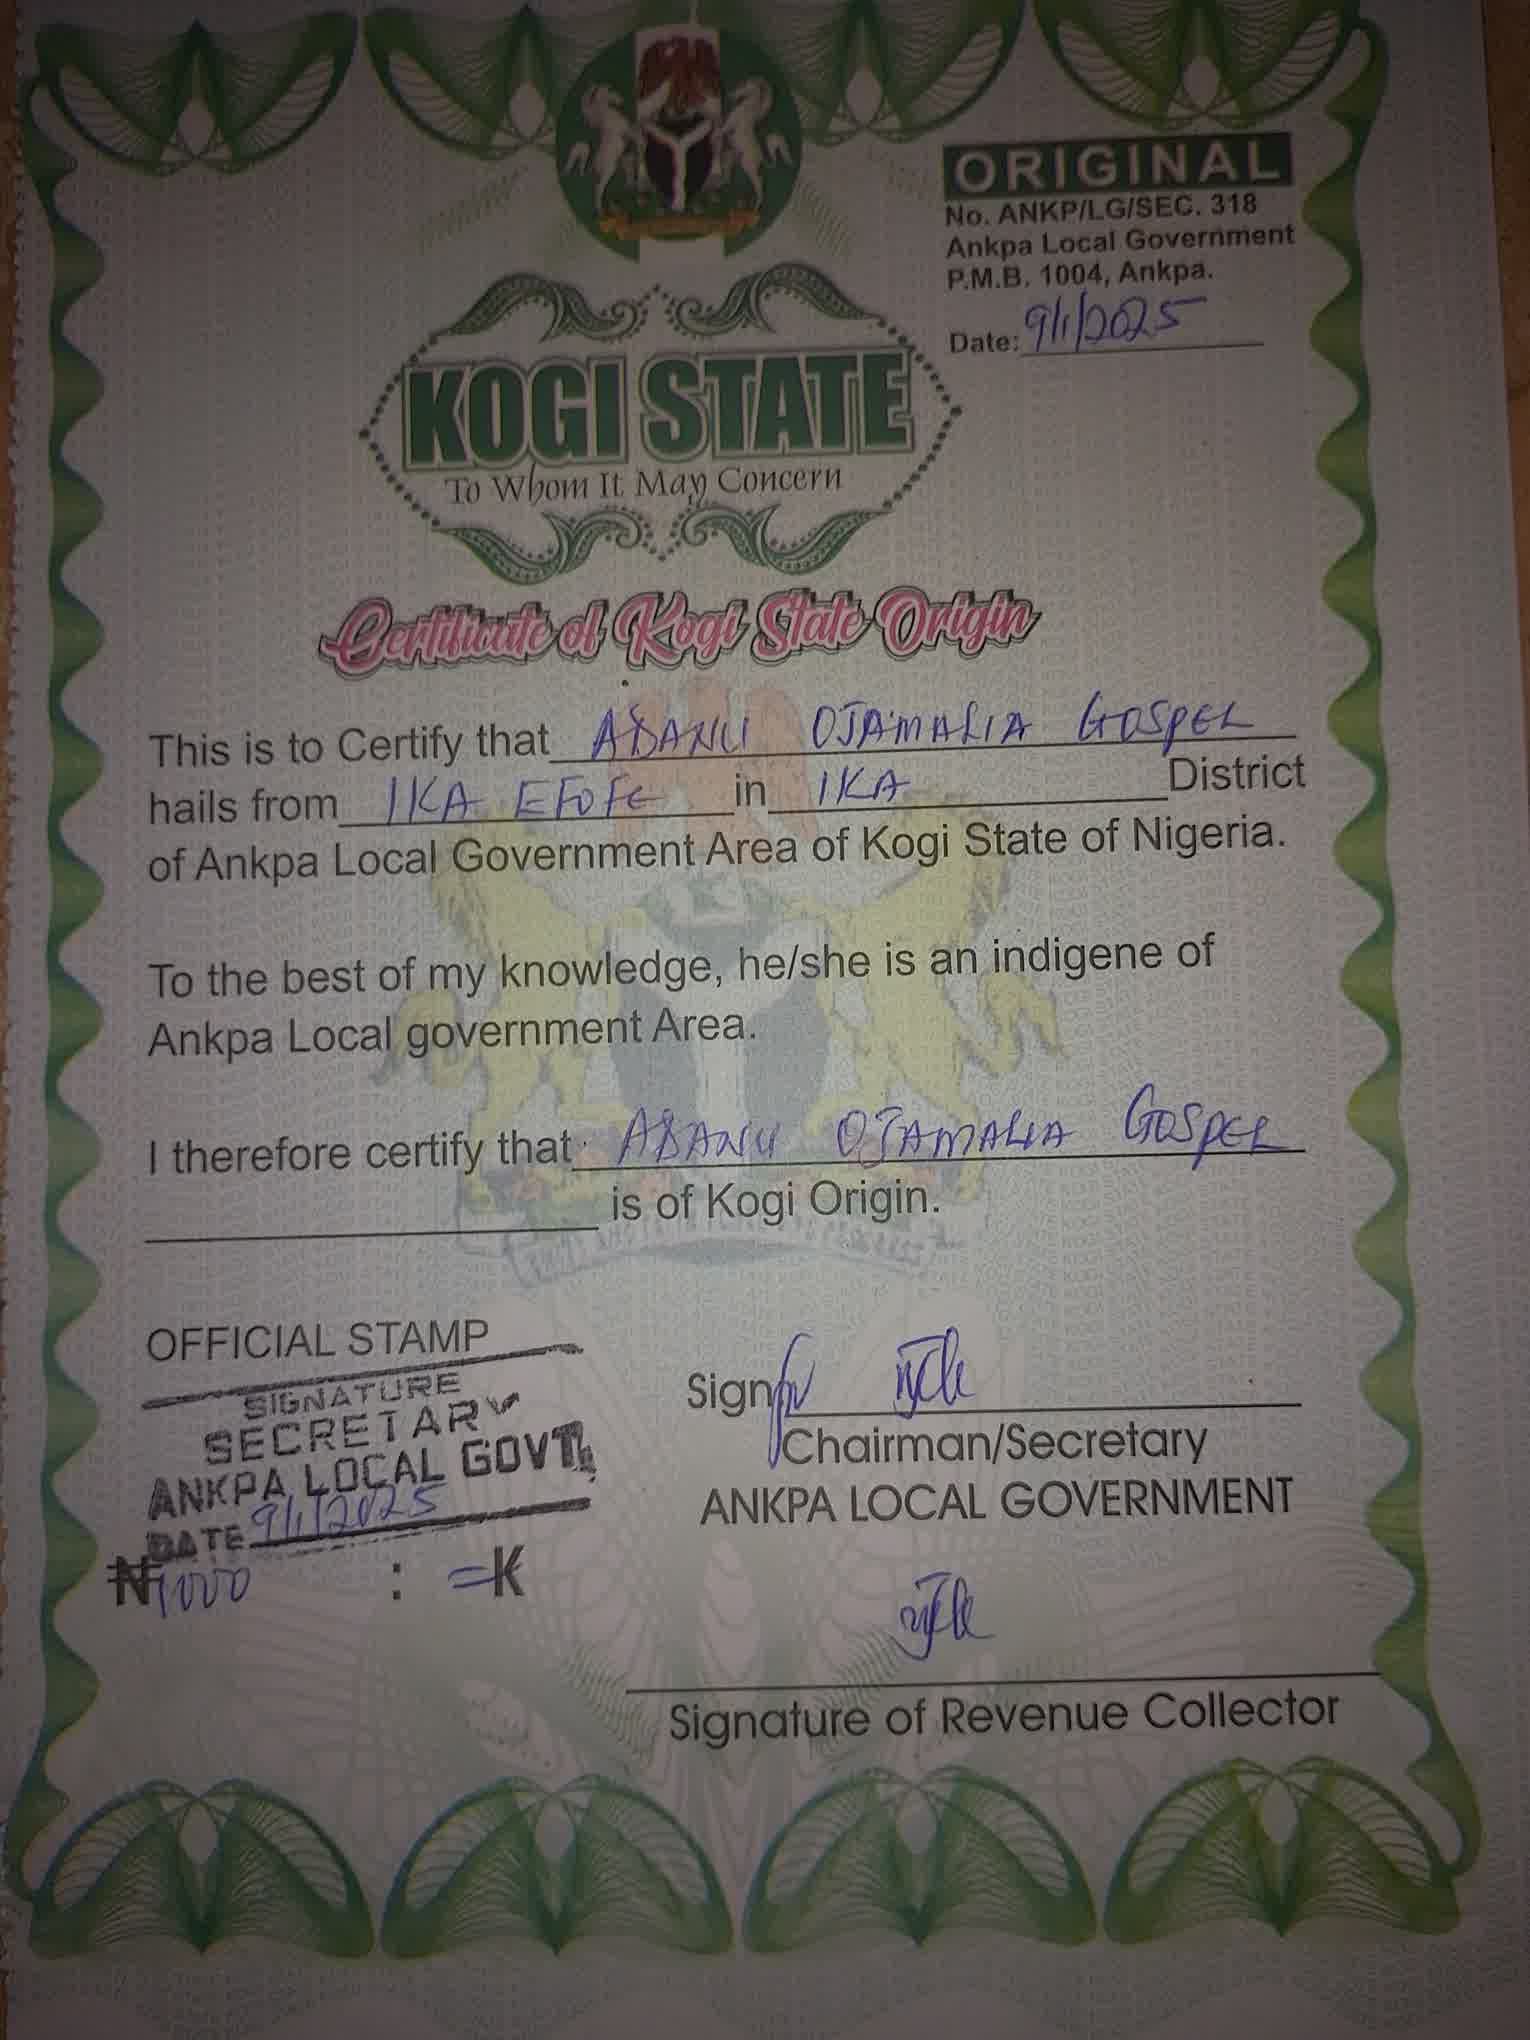 ORIGINAL
No. ANKP/LG/SEC. 318
Ankpa Local Government
P.M.B. 1004, Ankpa.
Date: 9/1/2025
KOGI STATE
To Whom It May Concern
Certificate of Kogi State Origin
This is to Certify that ABANU OJAMALIA GOSPEL
hails from IKA EFOFE in IKA District
of Ankpa Local Government Area of Kogi State of Nigeria.
To the best of my knowledge, he/she is an indigene of
Ankpa Local government Area.
I therefore certify that ABANU OJAMALIA GOSPEL
is of Kogi Origin.
OFFICIAL STAMP
SIGNATURE
SECRETARY
ANKPA LOCAL GOVT.
DATE 9/1/2025
₦1000 : =K
Sign
Chairman/Secretary
ANKPA LOCAL GOVERNMENT
Signature of Revenue Collector